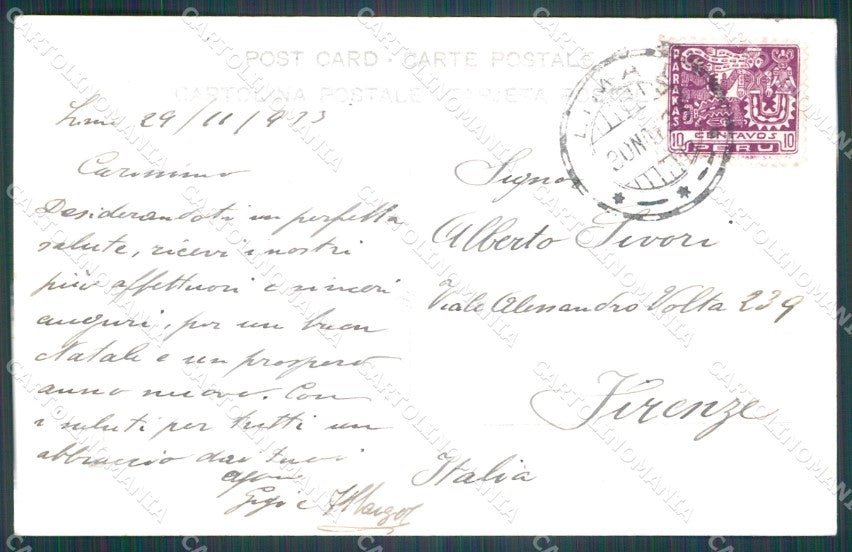 POST CARD · CARTE POSTALE
CARTOLINA POSTALE
Lima 29/11/933
Carissimo
Desiderandoti un perfetta
salute, ricevi i nostri
più affettuosi e sinceri
auguri, per un buon
Natale e un prospero
anno nuovo. Con
i saluti per tutti un
abbraccio dai tuoi
Gigi e
Signor
Alberto Sivori
Viale Alessandro Volta 239
Firenze
Italia
LIMA
30 NOV
PARACAS
10 CENTAVOS 10
PERU
CARTOLINOMANIA